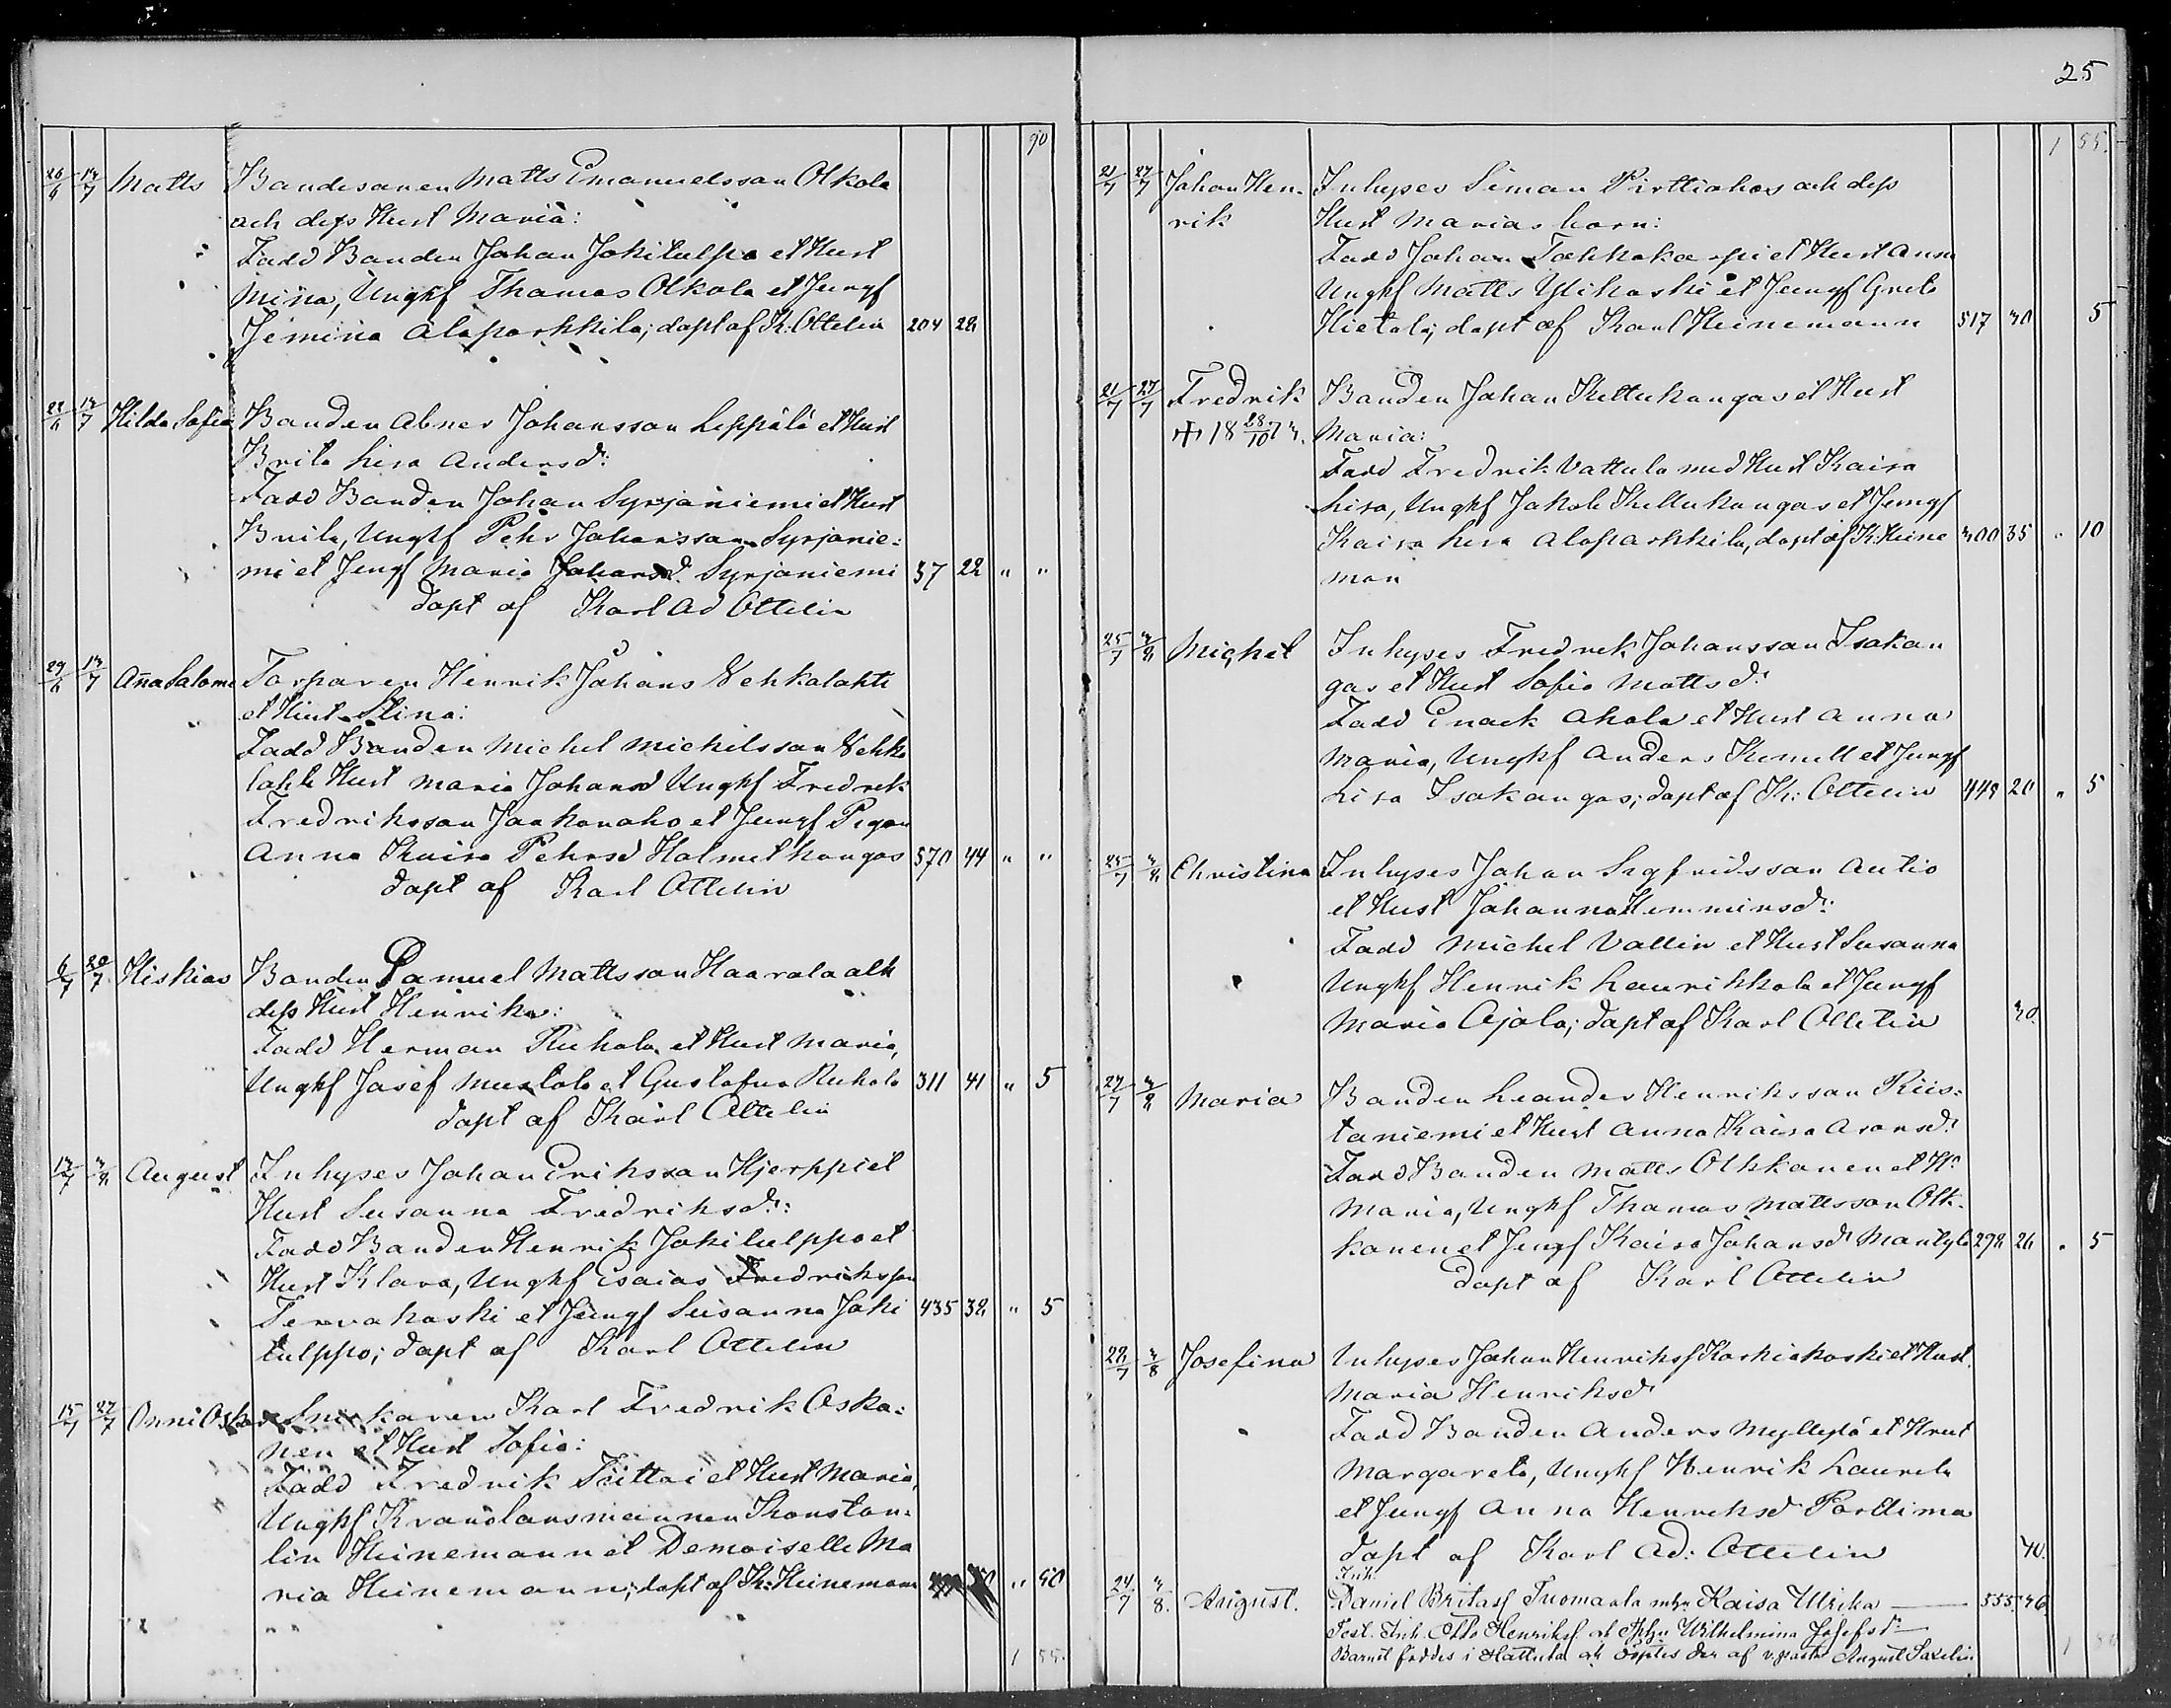 25
90
26/6 13/7 Matts Bandesonen Matts Emanuelsson Olkola
och dess Hust Maria:
Fadd Bonden Johan Jokitulppo et Hust
Mina, Unghf Thomas Olkola et Jungf
Jemina Alaparkkila; döpt af K: Ottelin 204 28
28/6 13/7 Hilda Sofia Bonden Abner Johansson Leppälä et Hust
Brita Lisa Andersd:
Fadd Bonden Johan Syrjäniemi et Hust
Brita, Unghf Pehr Johansson Syrjänie-
mi et Jungf Maria Johansd. Syrjäniemi 37 22 " "
döpt af Karl Ad Ottelin
29/6 13/7 Anna Salome Torparen Henrik Johans Vehkalahti
et Hust Stina:
Fadd Bonden Michel Michelsson Vehka
lahti Hust Maria Johansd Unghf Fredrik
Fredriksson Jaakonaho et Jungf Pigan
Anna Kaisa Pehrsd Halmetkangas 570 44 " "
döpt af Karl Ottelin
6/7 20/7 Hiskias Bonden Samuel Mattsson Haarala och
dess Hust Henrika:
Fadd Herman Ruhala et Hust Maria,
Unghf Josef Mustola et Gustafva Ruhala 311 41 " 5
döpt af Karl Ottelin
13/7 3/8 August Inhyses Johan Eriksson Hjerppi et
Hust Susanna Fredriksd:
Fadd Bonden Henrik Jokitulppo et
Hust Klara, Unghf Esaias Fredriksson
Tervakoski et Jungf Susanna Joki 435 38 " 5
tulppo; döpt af Karl Ottelin
15/7 27/7 Onni Oskar Snickaren Karl Fredrik Oska-
nen et Hust Sofia:
Fadd Fredrik Tiittai et Hust Maria,
Unghf Kronolänsmannen Konstan-
tin Heinemann et Demoiselle Ma
ria Heinemann; döpt af K: Heinemann " 50
1 55.
1 55.
21/7 27/7 Johan Hen- Inhyses Simon Pirttiahos och dess
rik Hust Marias barn:
Fadd Johan et Hust Anna
Unghf Matts Ylikoski et Jungf Greta
Hietala; döpt af Karl Heinemann 517 30 5
21/7 27/7 Fredrik Bonden Johan Kettukangas et Hust
+ 18 28/10 73. Maria:
Fadd Fredrik Vattula med Hust Kaisa
Lisa, Unghf Jakob Kettukangas et Jungf
Kaisa Lisa Alaparkkila, döpt af K: Heine 300 35 " 10
man
25/7 3/8 Michel Inhyses Fredrik Johansson Isokan
gas et Hust Sofia Mattsd:
Fadd Enock Ahola et Hust Anna
Maria, Unghf Anders Kumell et Jungf
Lisa Isokangas; döpt af K: Ottelin 448 20 " 5
25/7 3/8 Christina Inhyses Johan Sigfridsson Autio
et Hust Johanna Hemminsd:
Fadd Michel Vallin et Hust Susanna
Unghf Henrik Laurikkala et Jungf
Maria Ojala; döpt af Karl Ottelin 30.
27/7 3/8 Maria Bonden Leander Henriksson Riis-
taniemi et Hust Anna Kaisa Aronsd:
Fadd Bonden Matts Olkkonen et H:
Maria, Unghf Thomas Mattsson Olk-
konen et Jungf Kaisa Johansd: Mäntylä 298 26 " 5
döpt af Karl Ottelin
28/7 3/8 Josefina Inhyses Johan Henrikss Koskikoski et Hust
Maria Henriksd:
Fadd Bonden Anders Myllylä et Hust
Margareta, Unghf Henrik Laurela
et Jungf Anna Henriksd
döpt af Karl Ad: Ottelin 40.
Inh.
24/7 3/8. August. Daniel Britas Tuomaala mhu Kaisa Ulrika — 555. 46.
Test. Inh. Otto Henrikss och Wilhelmina Josefsd: —
Barnet föddes i Hattula och döptes der af v. pastor August Saxelin
1